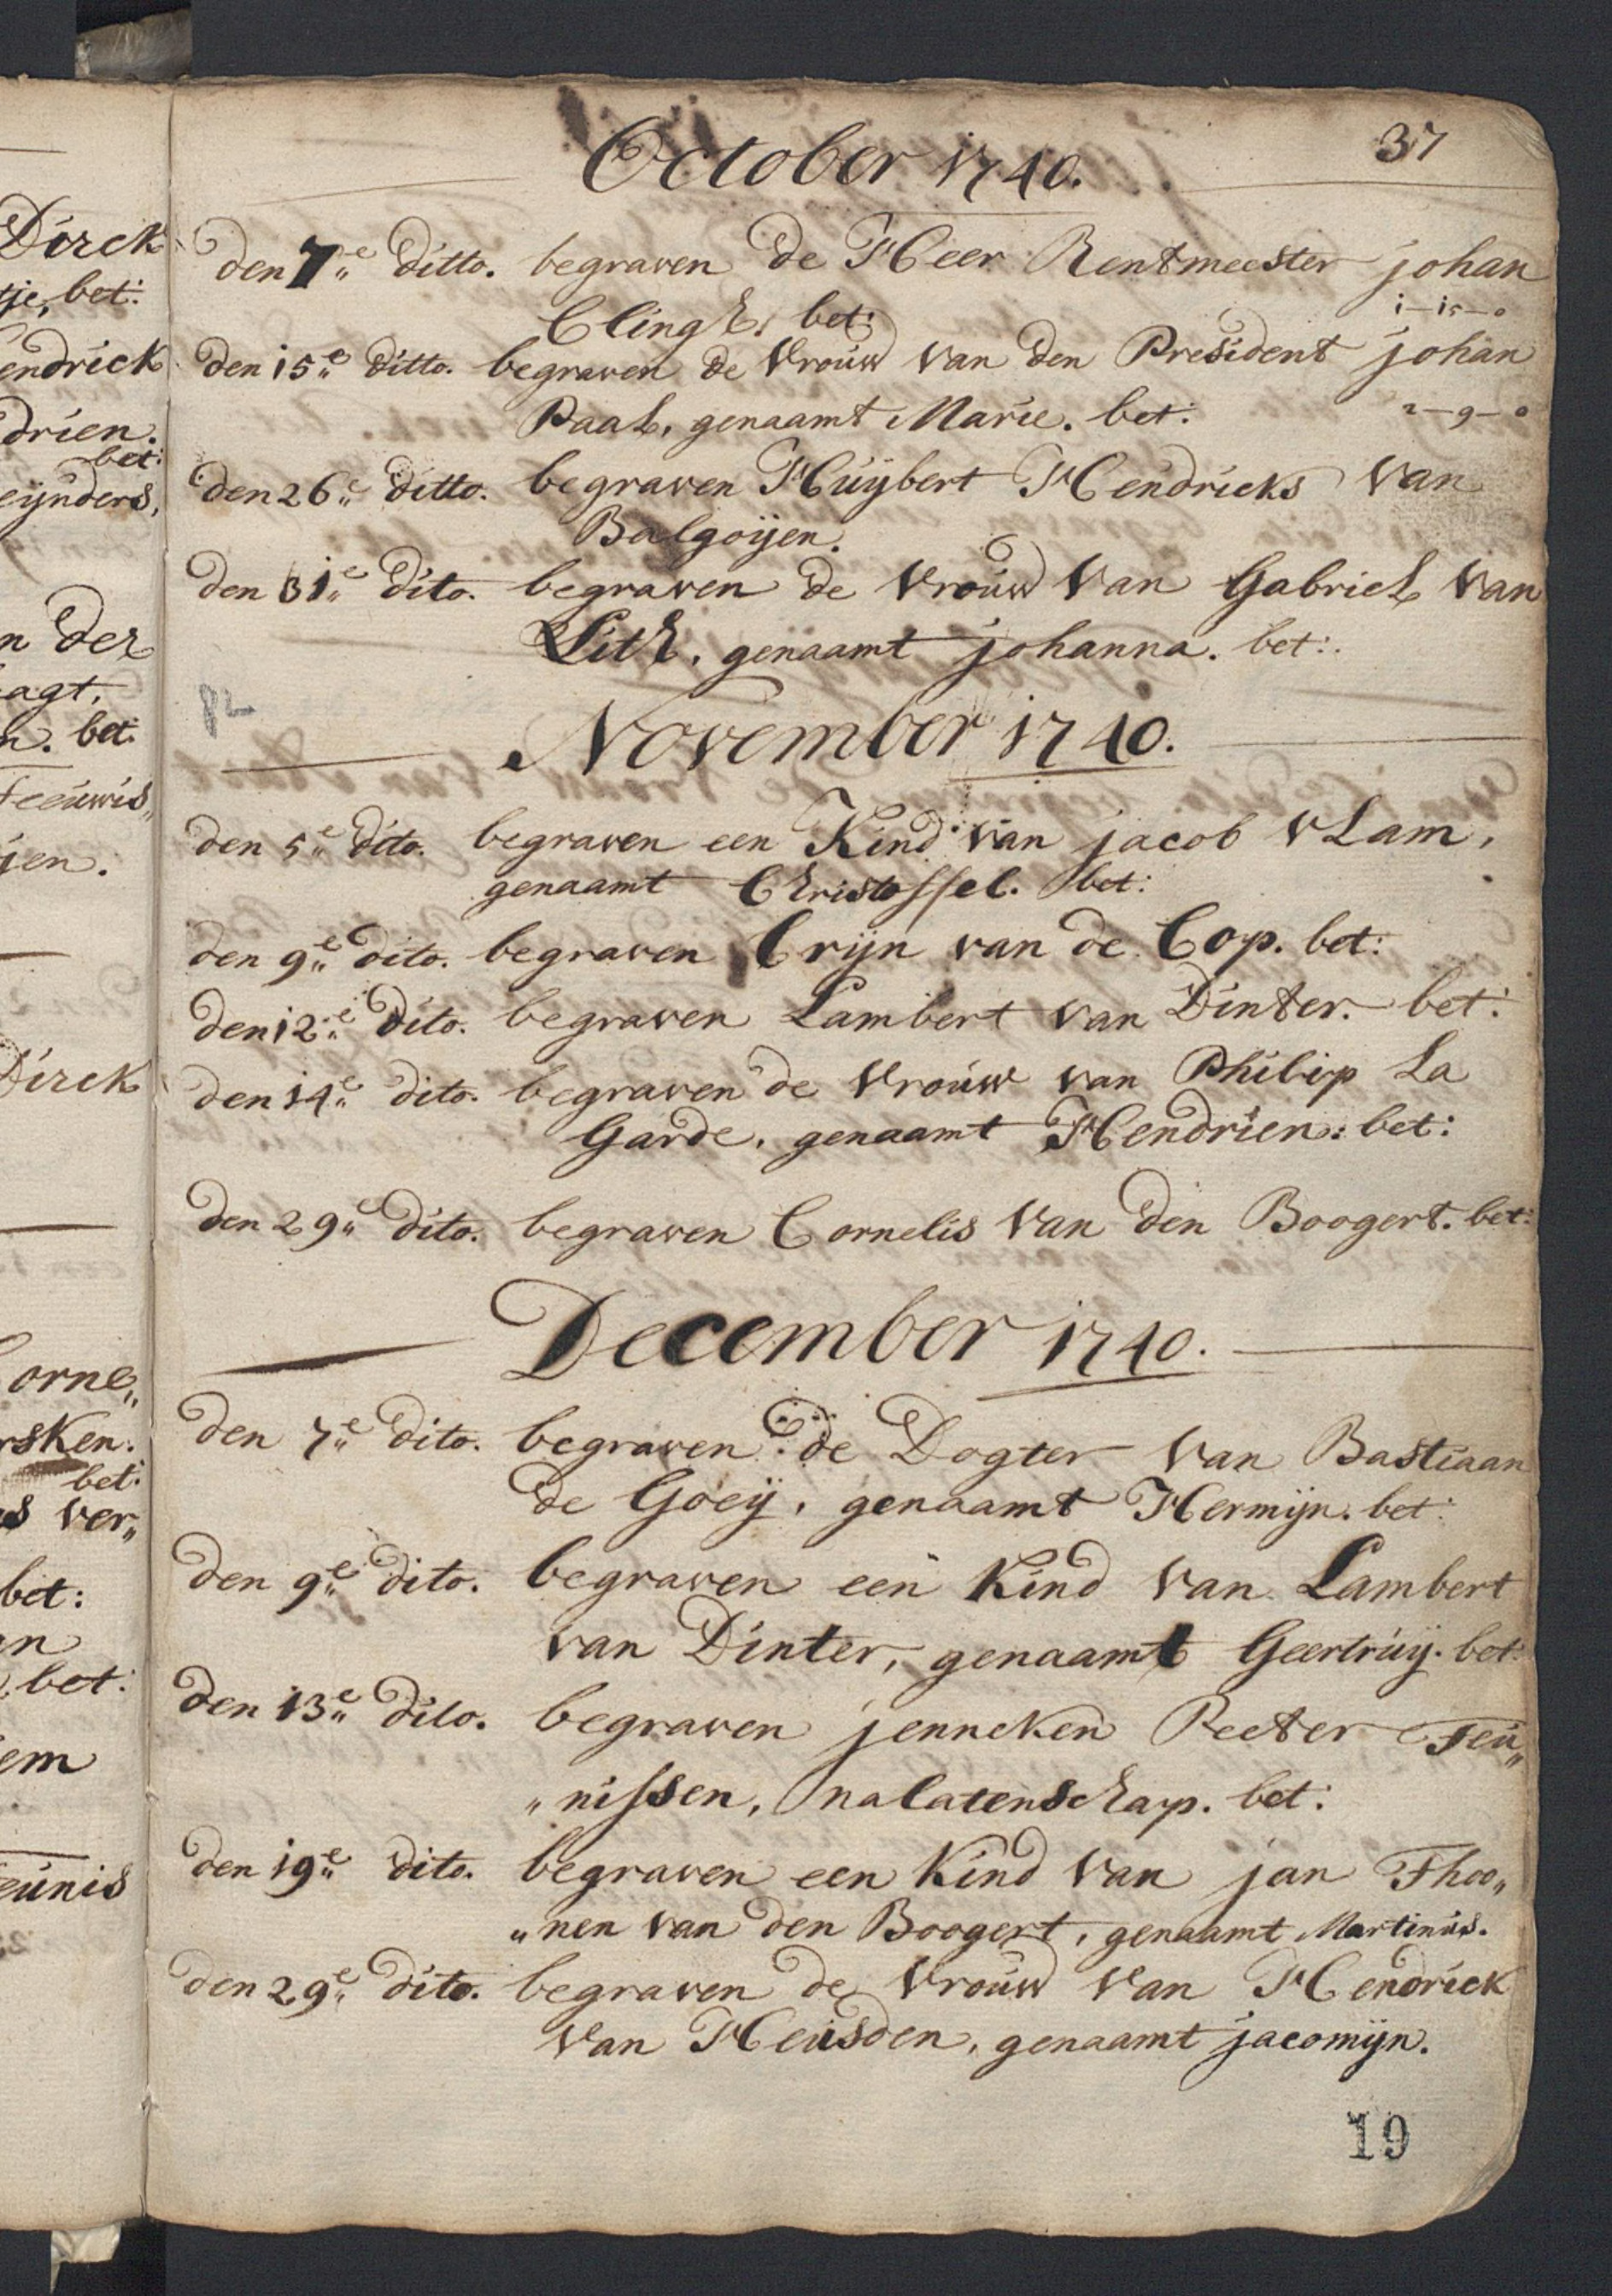 Dirck
tje, bet:
endrick
drien.
bet:
eijnders,
n der
agt,
n. bet:
Teeuwis„
jen.
Dirck
orne„
rsken.
bet:
s ver„
bet:
an
bet:
em
eunis
37
October 1740.
den 7.e ditto. begraven de Heer Rentmeester johan
Clingh. bet: 1–15–0
den 15.e ditto. begraven de vrouw van den President johan
Paal, genaamt Marie. bet: 2–9–0
den 26.e ditto. begraven Huijbert Hendricks van
Balgoijen.
den 31.e dito. begraven de vrouw van Gabriel van
Lith, genaamt johanna. bet:
82
November 1740.
den 5.e dito. begraven een Kind van jacob vLam,
genaamt Christoffel. bet:
den 9.e dito. begraven Crijn van de Cop. bet:
den 12.e dito. begraven Lambert van Dinter. bet:
den 14.e dito. begraven de vrouw van Philip La
Garde, genaamt Hendrien: bet:
den 29.e dito. begraven Cornelis van den Boogert. bet:
December 1740.
den 7.e dito. begraven de Dogter van Bastiaan
de Goeij, genaamt Hermijn. bet:
den 9.e dito. begraven een Kind van Lambert
van Dinter, genaamt Geertruij. bet:
den 13.e dito. begraven jenneken Peeter Teu„
„nissen, nalatenschap. bet:
den 19.e dito. begraven een Kind van jan Thoo„
„nen van den Boogert, genaamt Martinus.
den 29.e dito. begraven de vrouw van Hendrick
van Heusden, genaamt jacomijn.
19